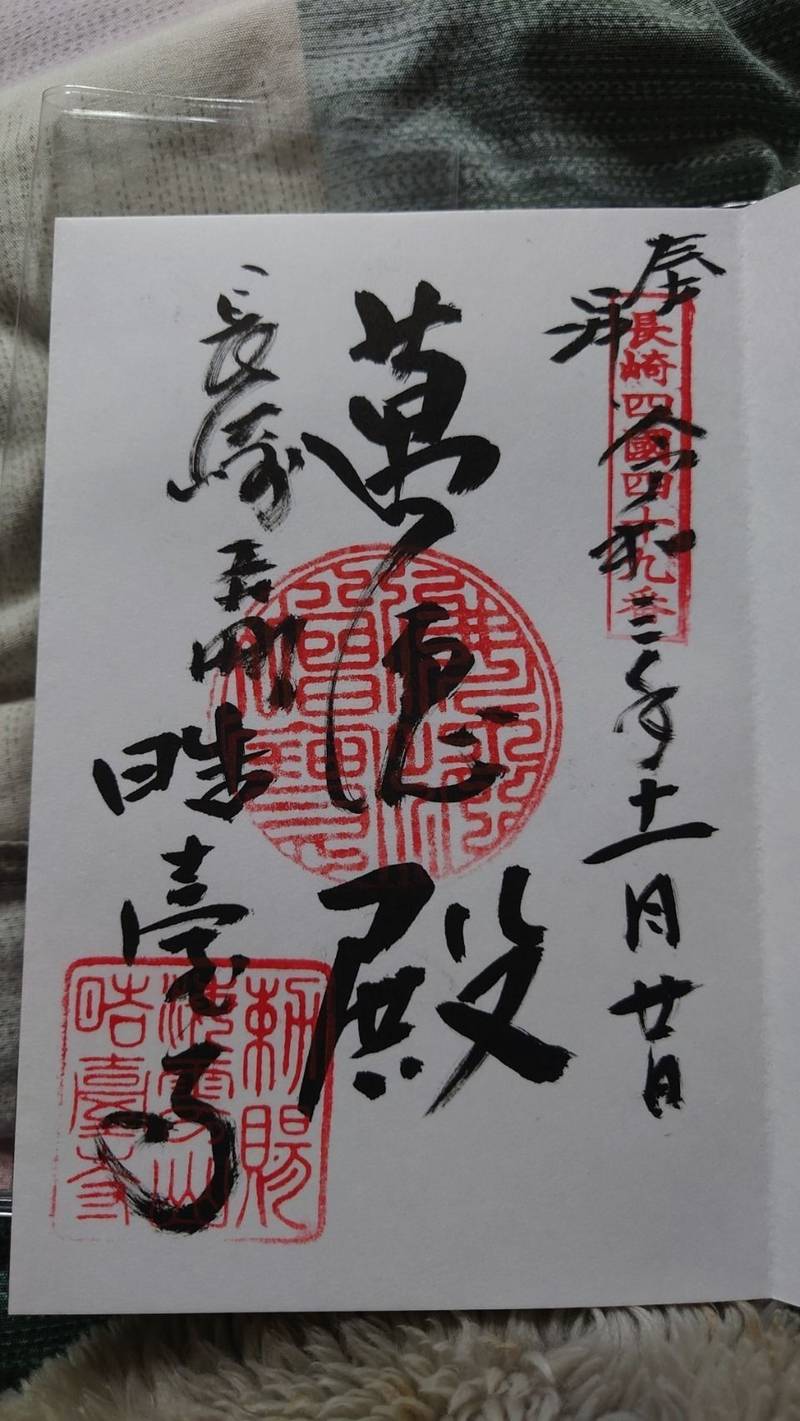 奉拝
長崎四國四十九番
令和三年十一月廿日
萬徳殿
長崎 皓臺寺
勅賜
海雲山
晧臺寺